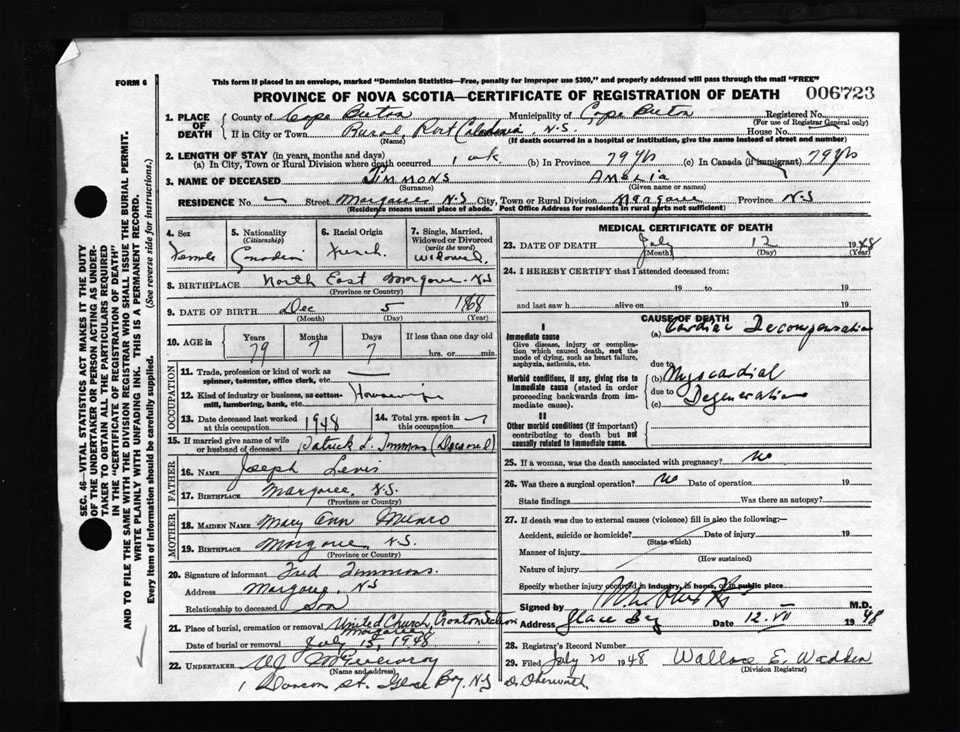 FORM 6
This form if placed in an envelope, marked "Dominion Statistics—Free, penalty for improper use $300," and properly addressed will pass through the mail "FREE"
PROVINCE OF NOVA SCOTIA—CERTIFICATE OF REGISTRATION OF DEATH 006723
1. PLACE OF DEATH
County of Cape Breton Municipality of Cape Breton Registered No.
(For use of Registrar General only)
If in City or Town Rural, Port Caledonia, N.S. House No.
(Name) (If death occurred in a hospital or institution, give the name instead of street and number)
2. LENGTH OF STAY (in years, months and days)
(a) In City, Town or Rural Division where death occurred 1 wk. (b) In Province 79 yrs (c) In Canada (if immigrant) 79 yrs
3. NAME OF DECEASED TIMMONS AMELIA
(Surname) (Given name or names)
RESIDENCE No. Street Margaree N.S. City, Town or Rural Division Margaree Province N.S
(Residence means usual place of abode. Post Office Address for residents in rural parts not sufficient)
4. Sex Female
5. Nationality (Citizenship) Canadian
6. Racial Origin French
7. Single, Married, Widowed or Divorced (write the word) Widowed.
8. BIRTHPLACE North East Margaree. N.S
(Province or Country)
9. DATE OF BIRTH Dec 5 1868
(Month) (Day) (Year)
10. AGE in Years 79 Months 7 Days 7 If less than one day old hrs. or min.
OCCUPATION
11. Trade, profession or kind of work as spinner, teamster, office clerk, etc.
12. Kind of industry or business, as cotton-mill, lumbering, bank, etc. Housewife
13. Date deceased last worked at this occupation 1948
14. Total yrs. spent in this occupation
15. If married give name of wife or husband of deceased Patrick L. Timmons (Deceased)
FATHER
16. NAME Joseph Lewis
17. BIRTHPLACE Margaree, N.S.
(Province or Country)
MOTHER
18. MAIDEN NAME Mary Ann Munro
19. BIRTHPLACE Margaree, N.S.
(Province or Country)
20. Signature of informant Fred Timmons.
Address Margaree, N.S
Relationship to deceased Son
21. Place of burial, cremation or removal United Church, Margaree
Date of burial or removal July 15, 1948.
22. UNDERTAKER
(Name and address)
St. Glace Bay, N.S
MEDICAL CERTIFICATE OF DEATH
23. DATE OF DEATH July 12 1948
(Month) (Day) (Year)
24. I HEREBY CERTIFY that I attended deceased from:
19 to 19
and last saw h alive on 19
CAUSE OF DEATH
I
Immediate cause
Give disease, injury or complication which caused death, not the mode of dying, such as heart failure, asphyxia, asthenia, etc.
(a) Cardiac Decompensation
due to
Morbid conditions, if any, giving rise to immediate cause (stated in order proceeding backwards from immediate cause).
(b) Myocardial
due to
(c) Degeneration
II
Other morbid conditions (if important) contributing to death but not causally related to immediate cause.
25. If a woman, was the death associated with pregnancy? No
26. Was there a surgical operation? No Date of operation 19
State findings Was there an autopsy?
27. If death was due to external causes (violence) fill in also the following:
Accident, suicide or homicide? Date of injury 19
(State which)
Manner of injury
(How sustained)
Nature of injury
Specify whether injury occurred in industry, in home, or in public place
Signed by M.D.
Address Glace Bay Date 12. VII 1948
28. Registrar's Record Number
29. Filed July 20 1948 Wallace E. Wadden
(Division Registrar)
SEC. 46—VITAL STATISTICS ACT MAKES IT THE DUTY
OF THE UNDERTAKER OR PERSON ACTING AS UNDER-
TAKER TO OBTAIN ALL THE PARTICULARS REQUIRED
IN THE "CERTIFICATE OF REGISTRATION OF DEATH"
AND TO FILE THE SAME WITH THE DIVISION REGISTRAR WHO SHALL ISSUE THE BURIAL PERMIT.
WRITE PLAINLY WITH UNFADING INK. THIS IS A PERMANENT RECORD.
Every item of information should be carefully supplied. (See reverse side for instructions.)